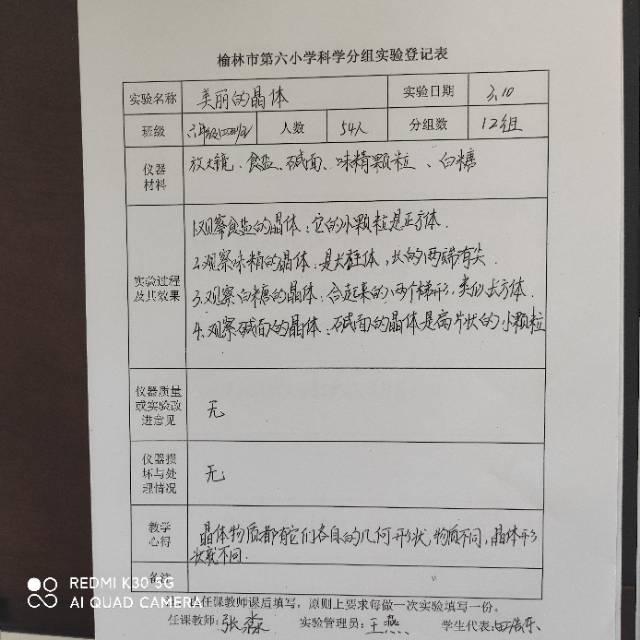 榆林市第六小学科学分组实验登记表
实验名称 美丽的晶体 实验日期 3.10
班级 六年级四班 人数 54人 分组数 12组
仪器材料 放大镜、食盐、碱面、味精颗粒、白糖
实验过程及其效果
1.观察食盐的晶体：它的小颗粒是正方体.
2.观察味精的晶体.是长柱体，长的两端有尖.
3.观察白糖的晶体.合起来的八两个梯形，类似长方体.
4.观察碱面的晶体：碱面的晶体是片状的小颗粒
仪器质量或实验改进意见 无
仪器损坏与处理情况 无
教学心得 晶体物质都有它们各自的几何形状，物质不同，晶体形
状就不同.
备注
任课教师课后填写，原则上要求每做一次实验填写一份。
任课教师：张淼 实验管理员：王燕 学生代表：
REDMI K30 5G
AI QUAD CAMERA